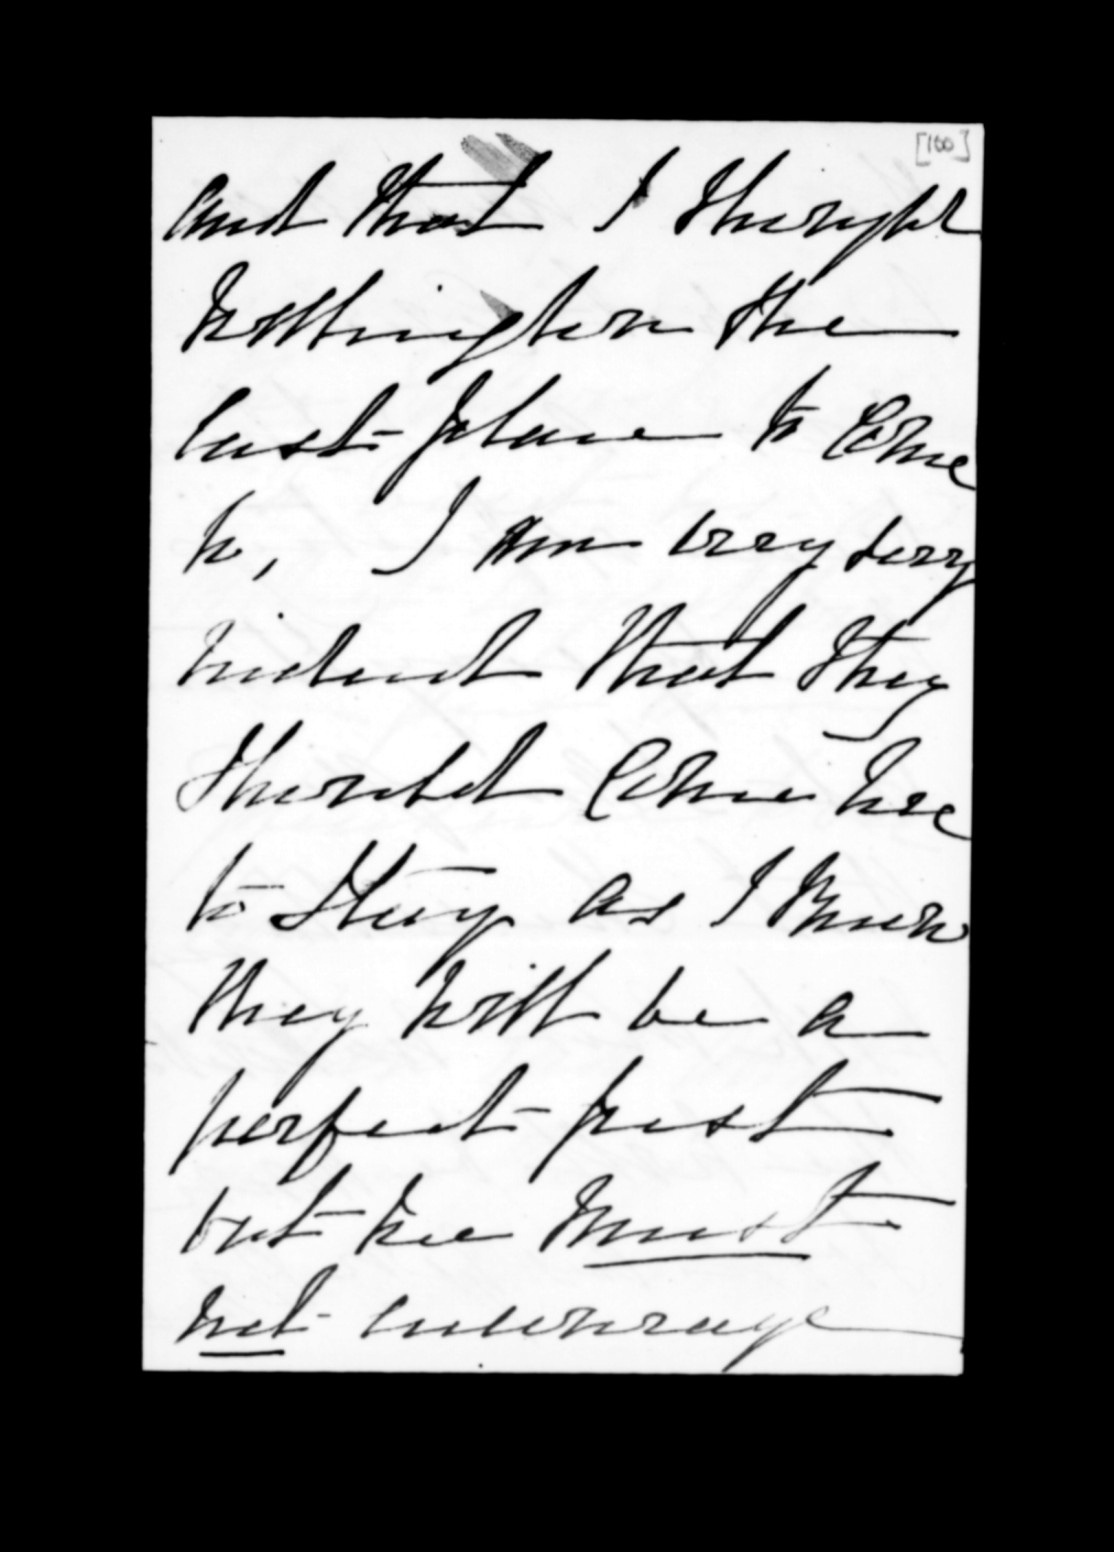 [100]
and that I thought
Wellington the
last place to come
to, I am very sorry
indeed that they
should come here
to stay as I know
they will be a
perfect pest
but we must
not encourage